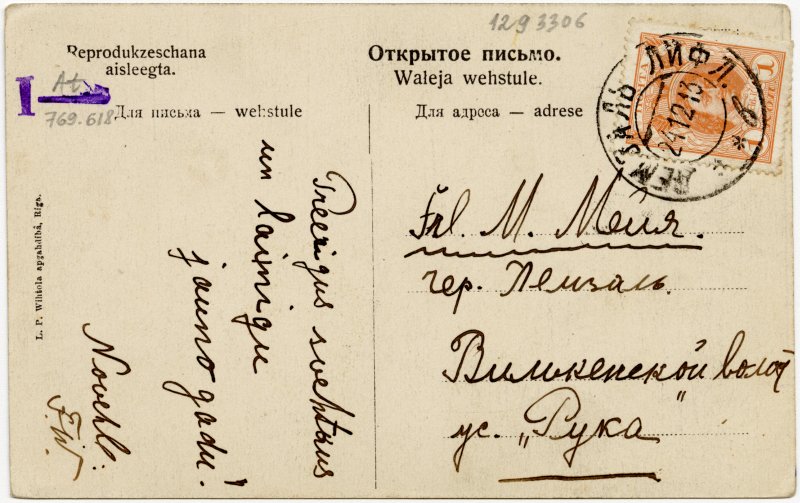 1293306
Reprodukzeschana
aisleegta.
Открытое письмо.
Waleja wehstule.
I At
769.618
Для письма — wehstule
Для адреса — adrese
ЛЕМЗАЛЬ ЛИФЛ.
24.12.13
1
1
Preezigus svehtkus
un laimigu
jauno gadu!
Novehl:
F.W.
Frl. М. Мейя.
чер. Лемзаль
Вилькенской волост
ус. „Рука“
L. P. Wihtola apgahdibâ, Riga.